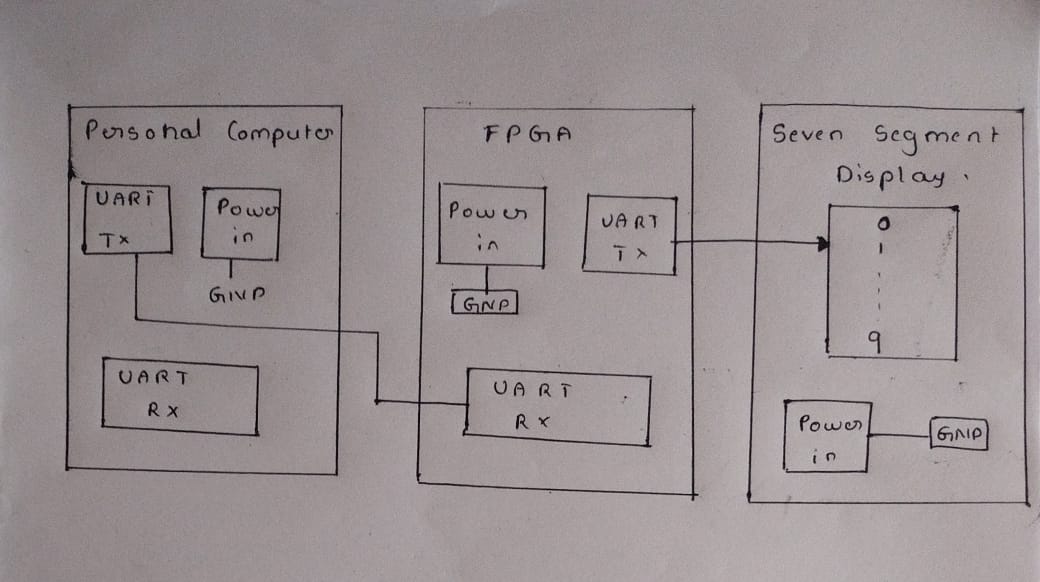 Personal Computer
UART
Tx
Power
in
GND
UART
RX
FPGA
Power
in
GND
UART
Tx
UART
RX
Seven Segment
Display.
0
1
9
Power
in
GND